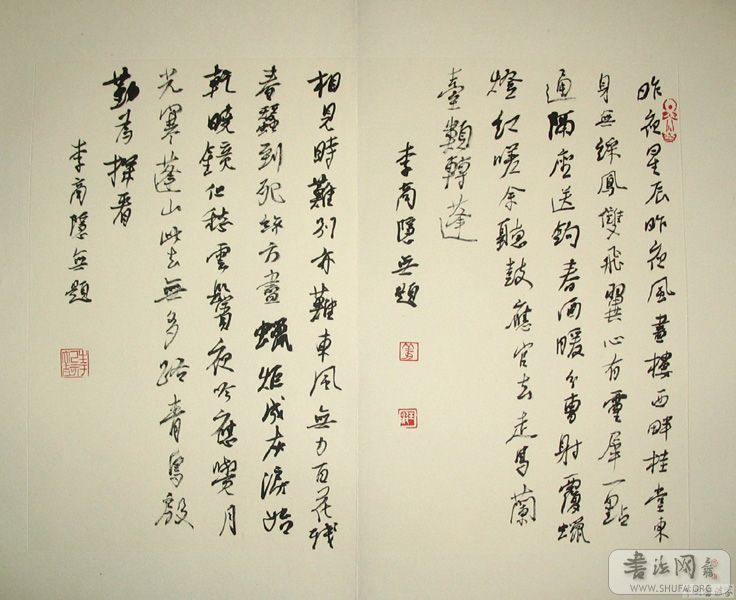 昨夜星辰昨夜風畫樓西畔桂堂東
身無綵鳳雙飛翼心有靈犀一點
通隔座送鈎春酒暖分曹射覆蠟
燈紅嗟余聽鼓應官去走馬蘭
臺類轉蓬
李商隱無題
相見時難別亦難東風無力百花殘
春蠶到死絲方盡蠟炬成灰淚始
乾曉鏡但愁雲鬢夜吟應覺月
光寒蓬山此去無多路青鳥殷
勤為探看
李商隱無題
書法网
WWW.SHUFA.ORG